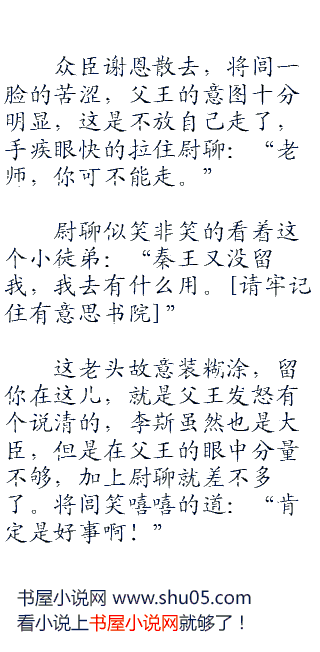 众臣谢恩散去，将闾一
脸的苦涩，父王的意图十分
明显，这是不放自己走了，
手疾眼快的拉住尉聊：“老
师，你可不能走。”
尉聊似笑非笑的看着这
个小徒弟：“秦王又没留
我，我去有什么用。[请牢记
住有意思书院]”
这老头故意装糊涂，留
你在这儿，就是父王发怒有
个说清的，李斯虽然也是大
臣，但是在父王的眼中分量
不够，加上尉聊就差不多
了。将闾笑嘻嘻的道：“肯
定是好事啊！”
书屋小说网 www.shu05.com
看小说上书屋小说网就够了！